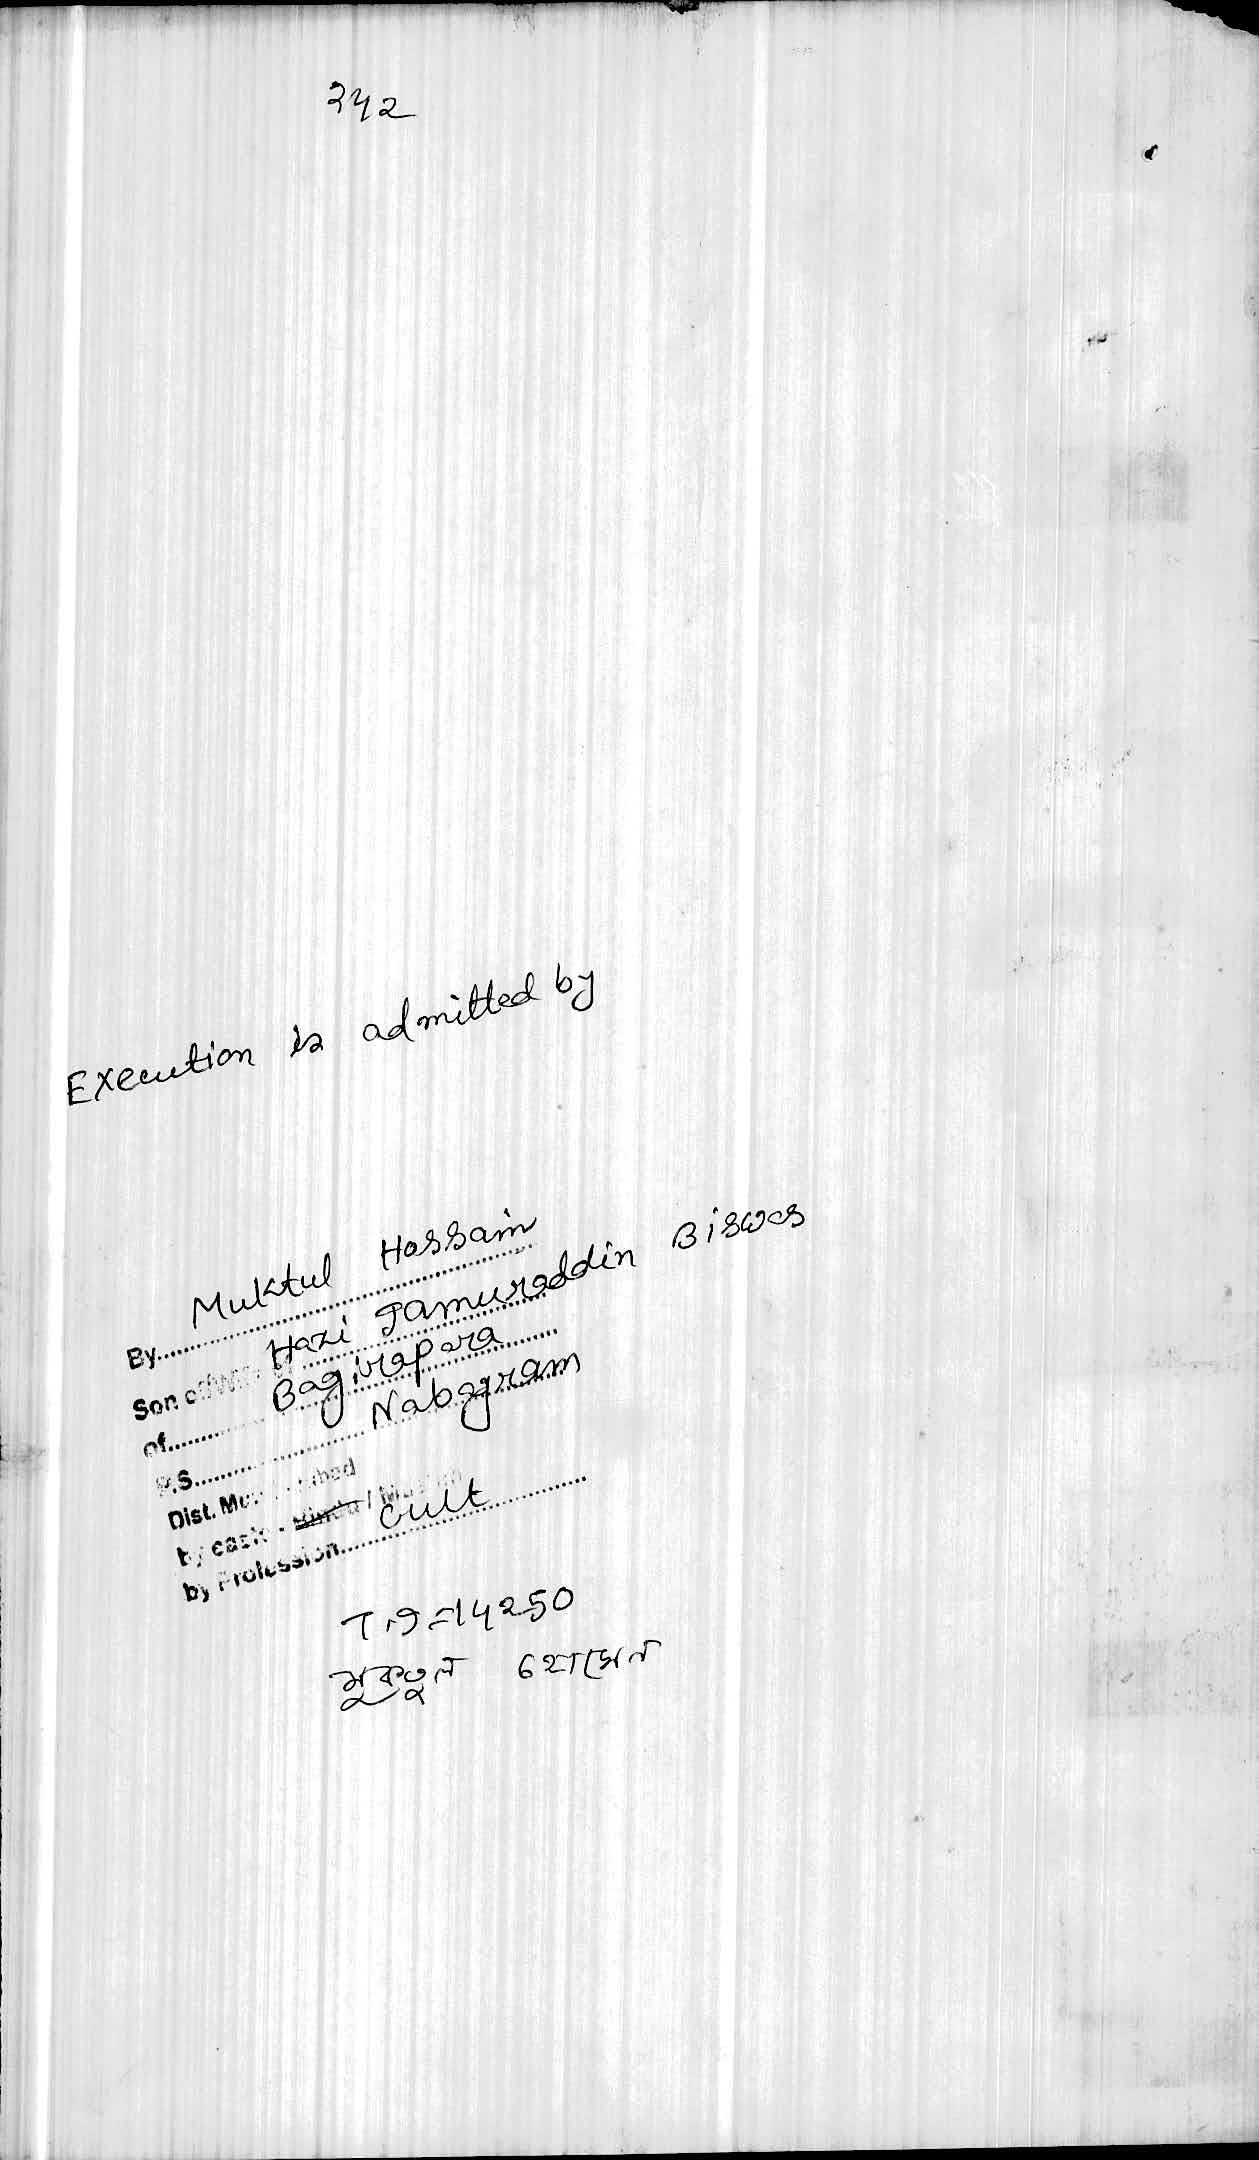 ২৫২
Execution is admitted by
By Muktul Hossain
Son of Hazi Jamuraddin Biswas
of Bagirapara
P.S. Nabagram
Dist.
by caste - Hindu /
by Profession Cult
T.I=14250
মুকতুল হোসেন